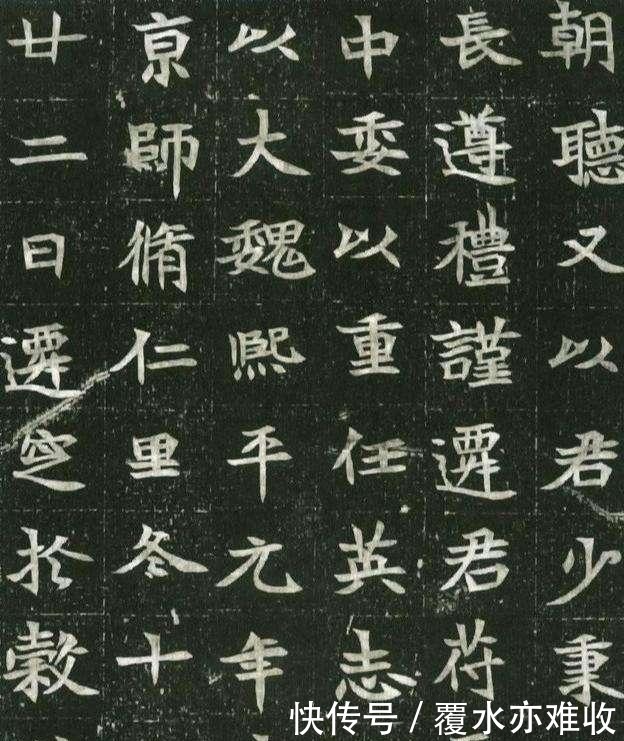 朝聽又以君少秉
長遵禮謹遷君苻
中委以重任英志
以大魏熙平元年
京師脩仁里冬十
廿二日遷窆於穀
快传号 / 覆水亦难收